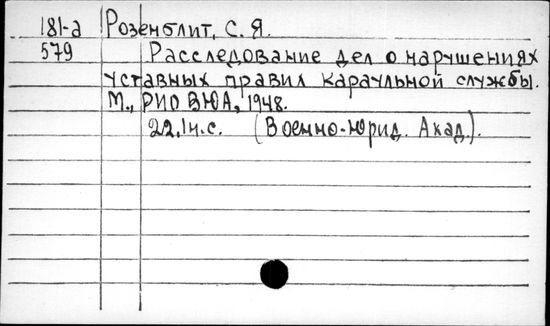 181-а Розенблит, С. Я.
579 Расследование дел о нарушениях
уставных правил караульной службы.
М., РИО ВЮА, 1948.
22, 1н.с. (Военно-юрид. Акад.).